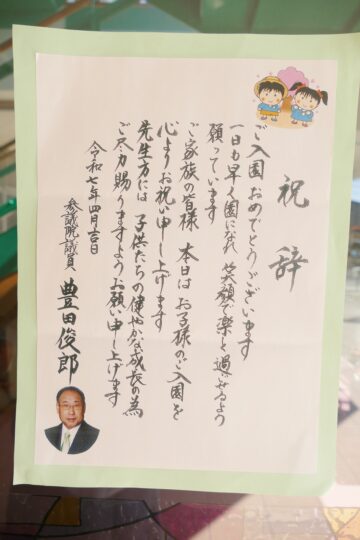 祝辞
ご入園おめでとうございます
一日も早く園になれ 笑顔で楽しく過ごせるよう
願っています
ご家族の皆様 本日は お子様のご入園を
心よりお祝い申し上げます
先生方には 子供たちの健やかな成長の為
ご尽力賜りますようお願い申し上げます
令和七年四月吉日
参議院議員 豊田俊郎